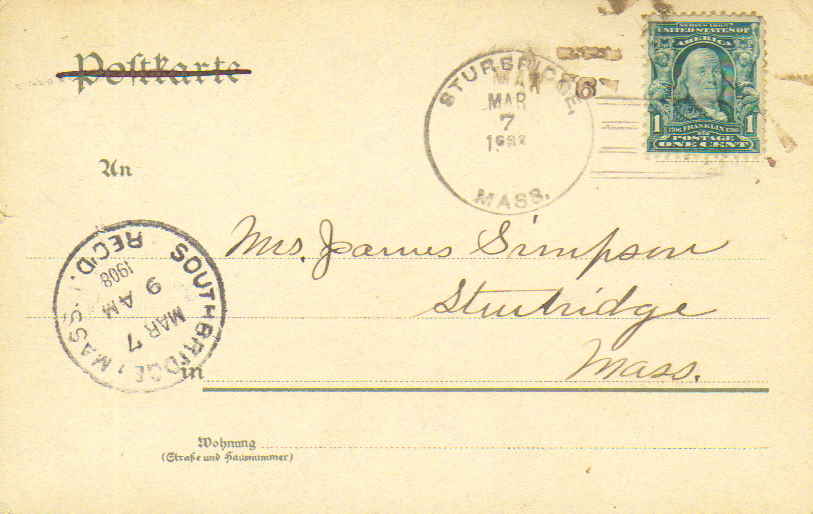 Postkarte
SERIES 1902
UNITED STATES OF
AMERICA
1 1706 FRANKLIN 1790 1
POSTAGE
ONE CENT
STURBRIDGE,
MAR
6
MAR
7
MASS.
An
Mrs. James Simpson
Sturbridge
Mass.
SOUTHBRIDGE, MASS.
REC'D.
1908
9 AM
MAR 7
in
Wohnung
(Straße und Hausnummer)